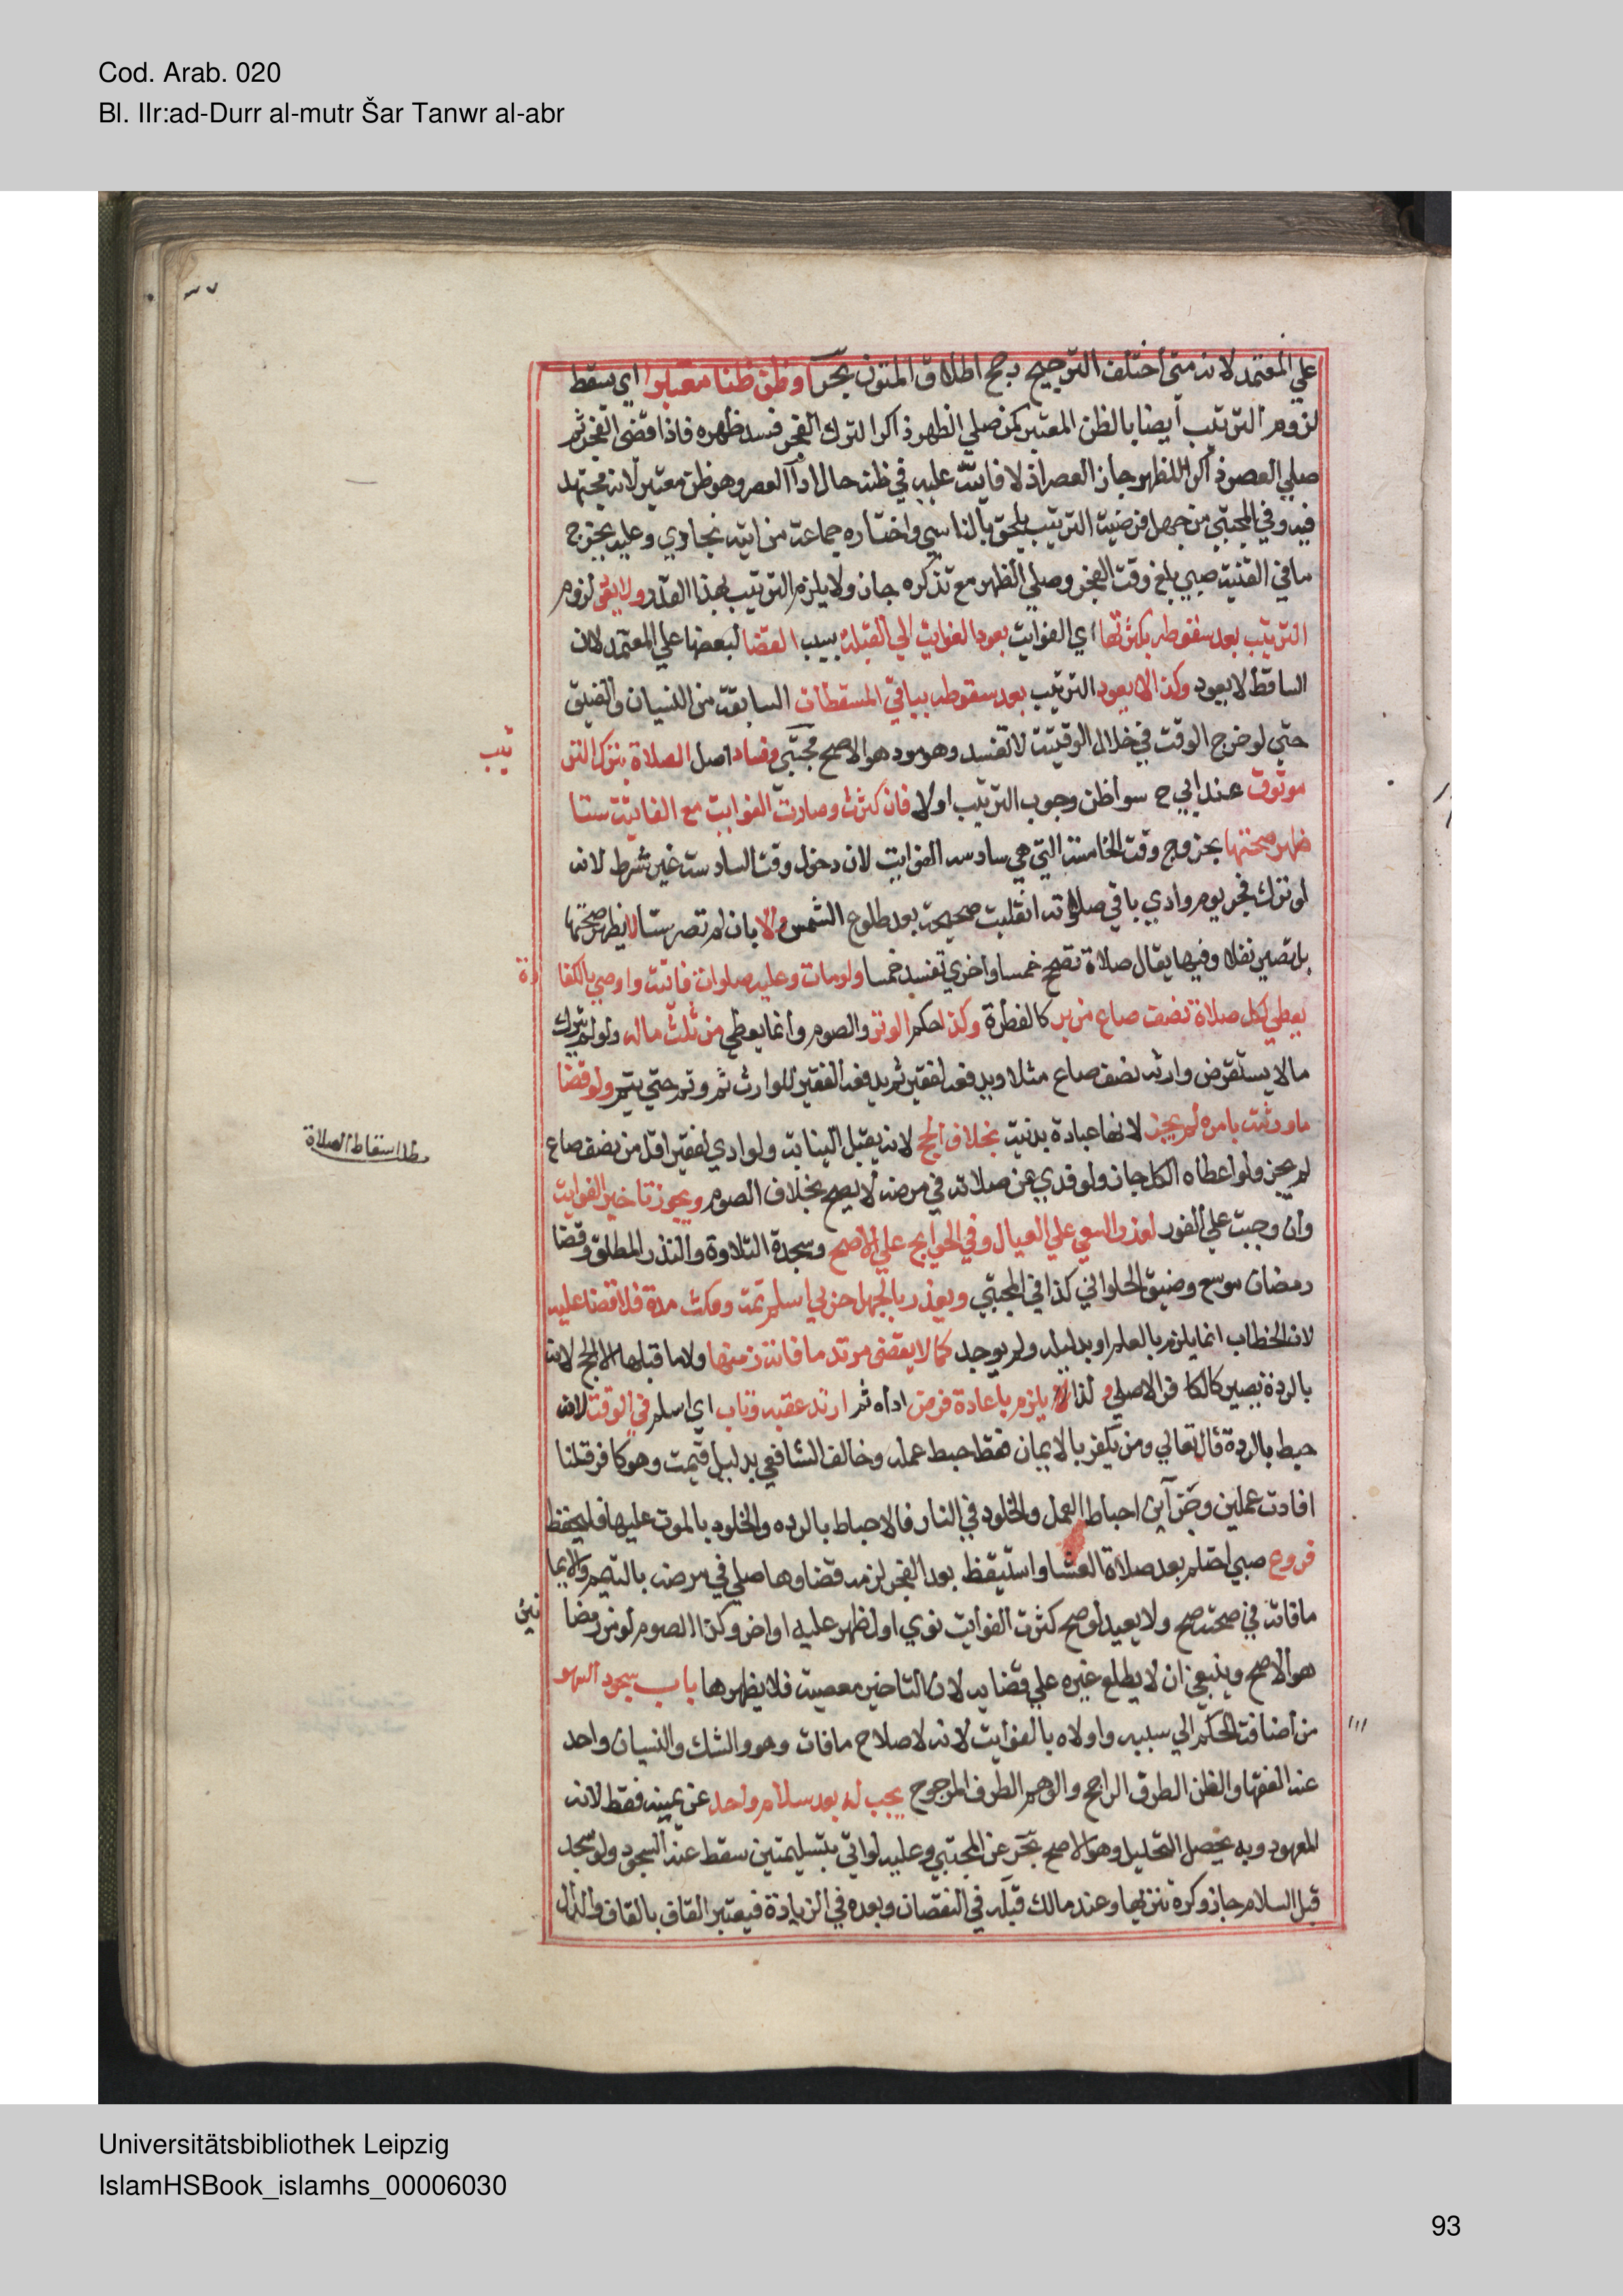 Cod. Arab. 020
Bl. IIr:ad-Durr al-mutr Šar Tanwr al-abr
علي المعتمد لانه متى اختلف الترجيح رجح اطلاق المتون بحر او ظن ظنا معتبرا اي يسقط
لزوم الترتيب ايضا بالظن المعتبر كمن صلي الظهر ذاكرا لترك الفجر فسد ظهره فاذا قضى الفجر ثم
صلي العصر ذاكرا للظهر جاز العصر اذ لا فايتة عليه في ظنه حال ادآ العصر وهو ظن معتبر لانه مجتهد
فيه وفي المجتبي من جهل فرضية الترتيب يلحق بالناسي واختاره جماعة من ايمة بخاري وعليه يخرج
ما في القنية صبي بلغ وقت الفجر وصلي الظهر مع تذكره جاز ولا يلزم الترتيب بهذا القدر ولا يقي لزوم
الترتيب بعد سقوطه بكثرتها اي الفوايت بعود الفوايت الي القبلة بسبب القضا لبعضها علي المعتمد لان
الساقط لا يعود وكذا لا يعود الترتيب بعد سقوطه بباقي المسقطات السابقة من النسيان والضيق
حتي لو خرج الوقت في خلال الوقتية لا تفسد وهو مود هو الاصح مجتبي وفساد اصل الصلاة بترك التر
تيب
موقوف عند ابي ح سوا ظن وجوب الترتيب اولا فان كثرت وصارت الفوايت مع الفايتة ستا
ظهر صحتها بخروج وقت الخامسة التي هي سادسة الفوايت لان دخول وقت السادسة غير شرط لانه
لو ترك فجر يوم وادي باقي صلواته انقلبت صحيحة بعد طلوع الشمس والا بان لم تصر ستا لا يظهر صحتها
بل تصير نفلا وفيها يقال صلاة تصحح خمسا واخري تفسد خمسا ولو مات وعليه صلوات فاتت واوصي بالكفا
رة
يعطي لكل صلاة نصف صاع من بر كالفطرة وكذا حكم الوتر والصوم وانما يعطي من ثلث ماله ولو لم يترك
مالا يستقرض وارثه نصف صاع مثلا ويدفعه لفقير ثم يدفعه الفقير للوارث ثم وثم حتي يتم ولو قضا
ها ورثته بامره لم يجز لانها عبادة بدنية بخلاف الحج لانه يقبل النيابة ولو ادي لفقير اقل من نصف صاع
اسقاط الصلاة
لم يجز ولو اعطاه الكل جاز ولو فدي عن صلاته في مرضه لا يصح بخلاف الصوم ويجوز تاخير الفوايت
وان وجبت علي الفور لعذر السعي علي العيال وفي الحوايج علي الاصح وسجدة التلاوة والنذر المطلق وقضا
رمضان موسع وضيق الحلواني كذا في المجتبي ويعذر بالجهل حربي اسلم ثمت ومكث مدة فلا قضا عليه
لان الخطاب انما يلزم بالعلم او بدليله ولم يوجد كما لا يقضى مرتد ما فاته زمنها ولا ما قبلها الا الحج لانه
بالردة يصير كالكافر الاصلي و لذا يلزم باعادة فرض اداه ثم ارتد عقبه وتاب اي اسلم في الوقت لانه
حبط بالردة قال تعالي ومن يكفر بالايمان فقط حبط عمله وخالف الشافعي بدليل فيمت وهو كافر قلنا
افادت عملين وجزآين احباط العمل والخلود في النار فالاحباط بالرده والخلود بالموت عليها فليحفظ
فروع صبي احتلم بعد صلاة العشا واستيقظ بعد الفجر لزمه قضاوها صلي في مرضه بالتيمم والايما
ما فاته في صحته صح ولا يعيد لو صح كثرت الفوايت نوي اول ظهر عليه او اخر وكذا الصوم لو من رمضا
نين
هو الاصح وينبغي ان لا يطلع غيره علي قضايه لان التاخير معصية فلا يظهرها باب سجود السهو
من اضافة الحكم الي سببه واولاه بالفوايت لانه لاصلاح ما فات وهو والشك والنسيان واحد
عند الفقها والظن الطرف الراجح والوهم الطرف المرجوح يجب له بعد سلام واحد عن يمينه فقط لانه
المعهود وبه يحصل التحليل وهو الاصح بحر عن المجتبي وعليه لو اتي بتسليمتين سقط عنه السجود ولو سجد
قبل السلام جاز وكره تنزيها وعند مالك قبله في النقصان وبعده في الزيادة فيعتبر القاف بالقاف والدال
Universitätsbibliothek Leipzig
IslamHSBook_islamhs_00006030
93